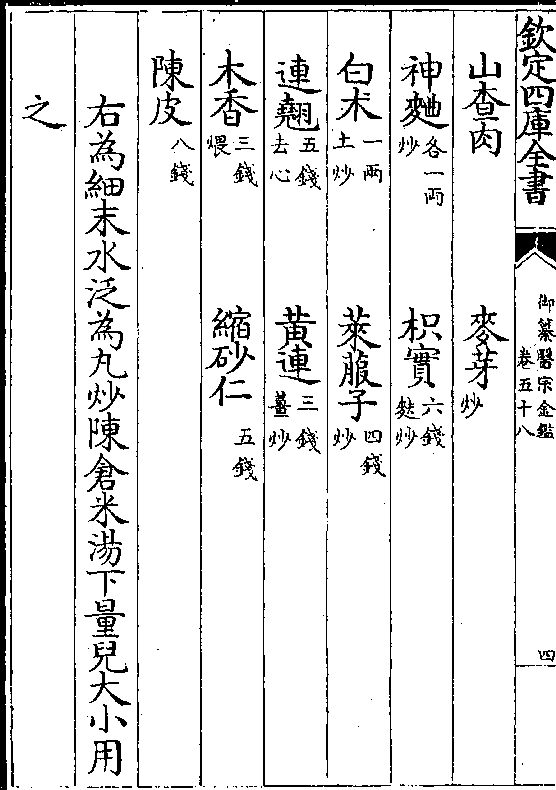 欽定四庫全書
御纂醫宗金鑑
卷五十八
四
山查肉 麥芽炒
神麯各一兩炒 枳實六錢麩炒
白朮一兩土炒 萊菔子四錢炒
連翹五錢去心 黃連三錢薑炒
木香三錢煨 縮砂仁五錢
陳皮八錢
右為細末水泛為丸炒陳倉米湯下量兒大小用
之